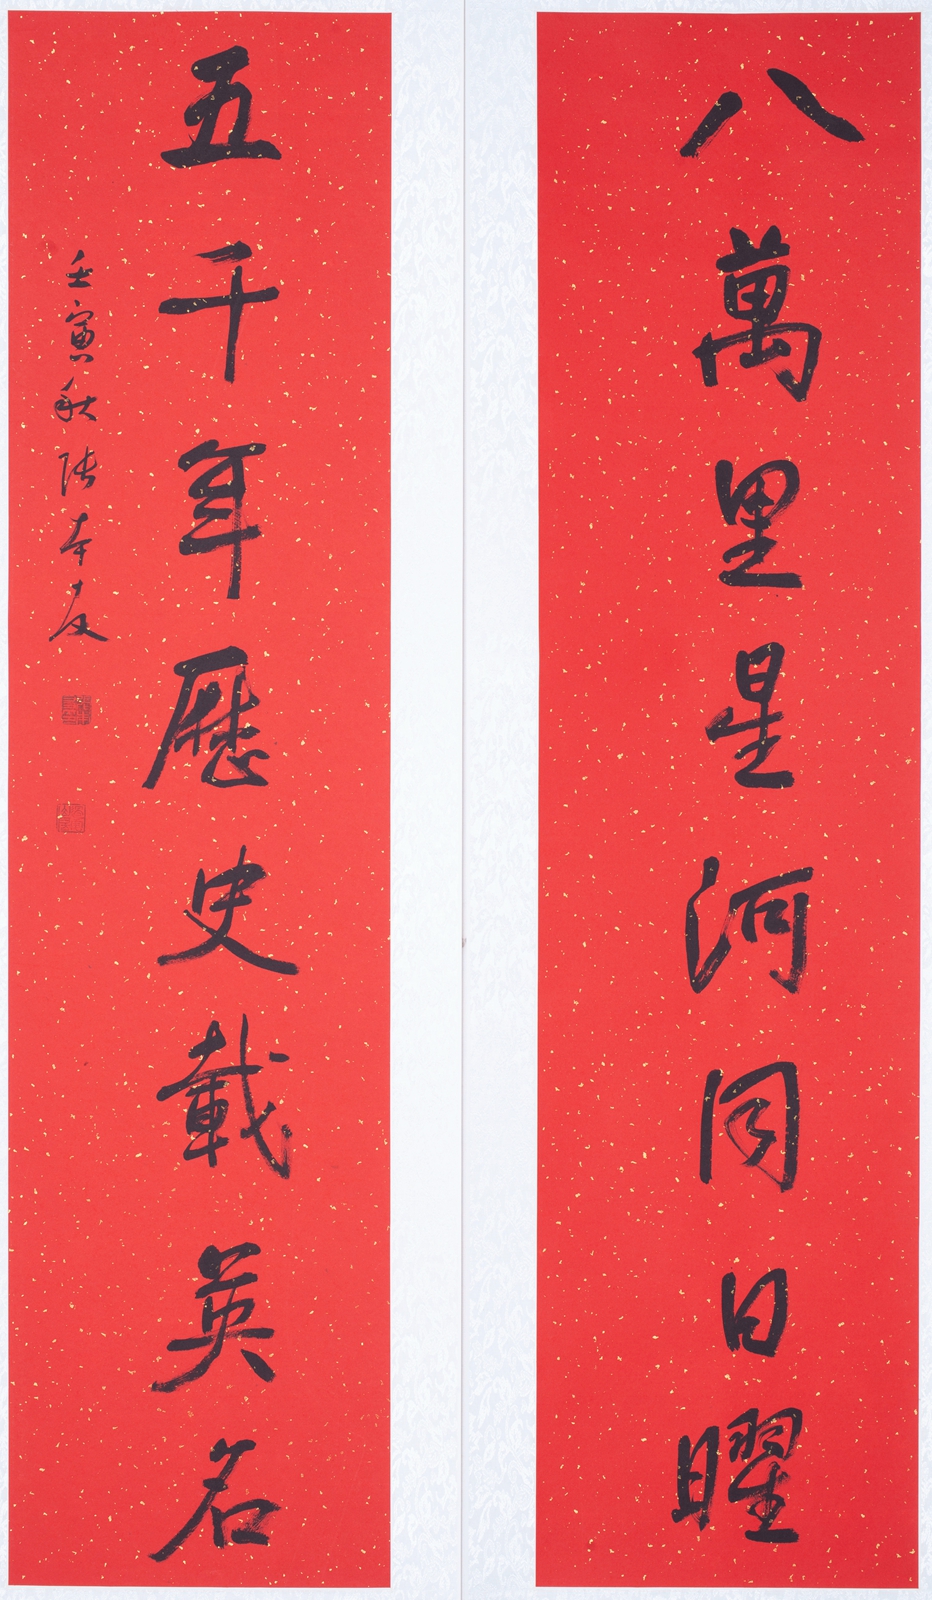 八萬里星河同日曜
五千年歷史載英名
壬寅秋張本友